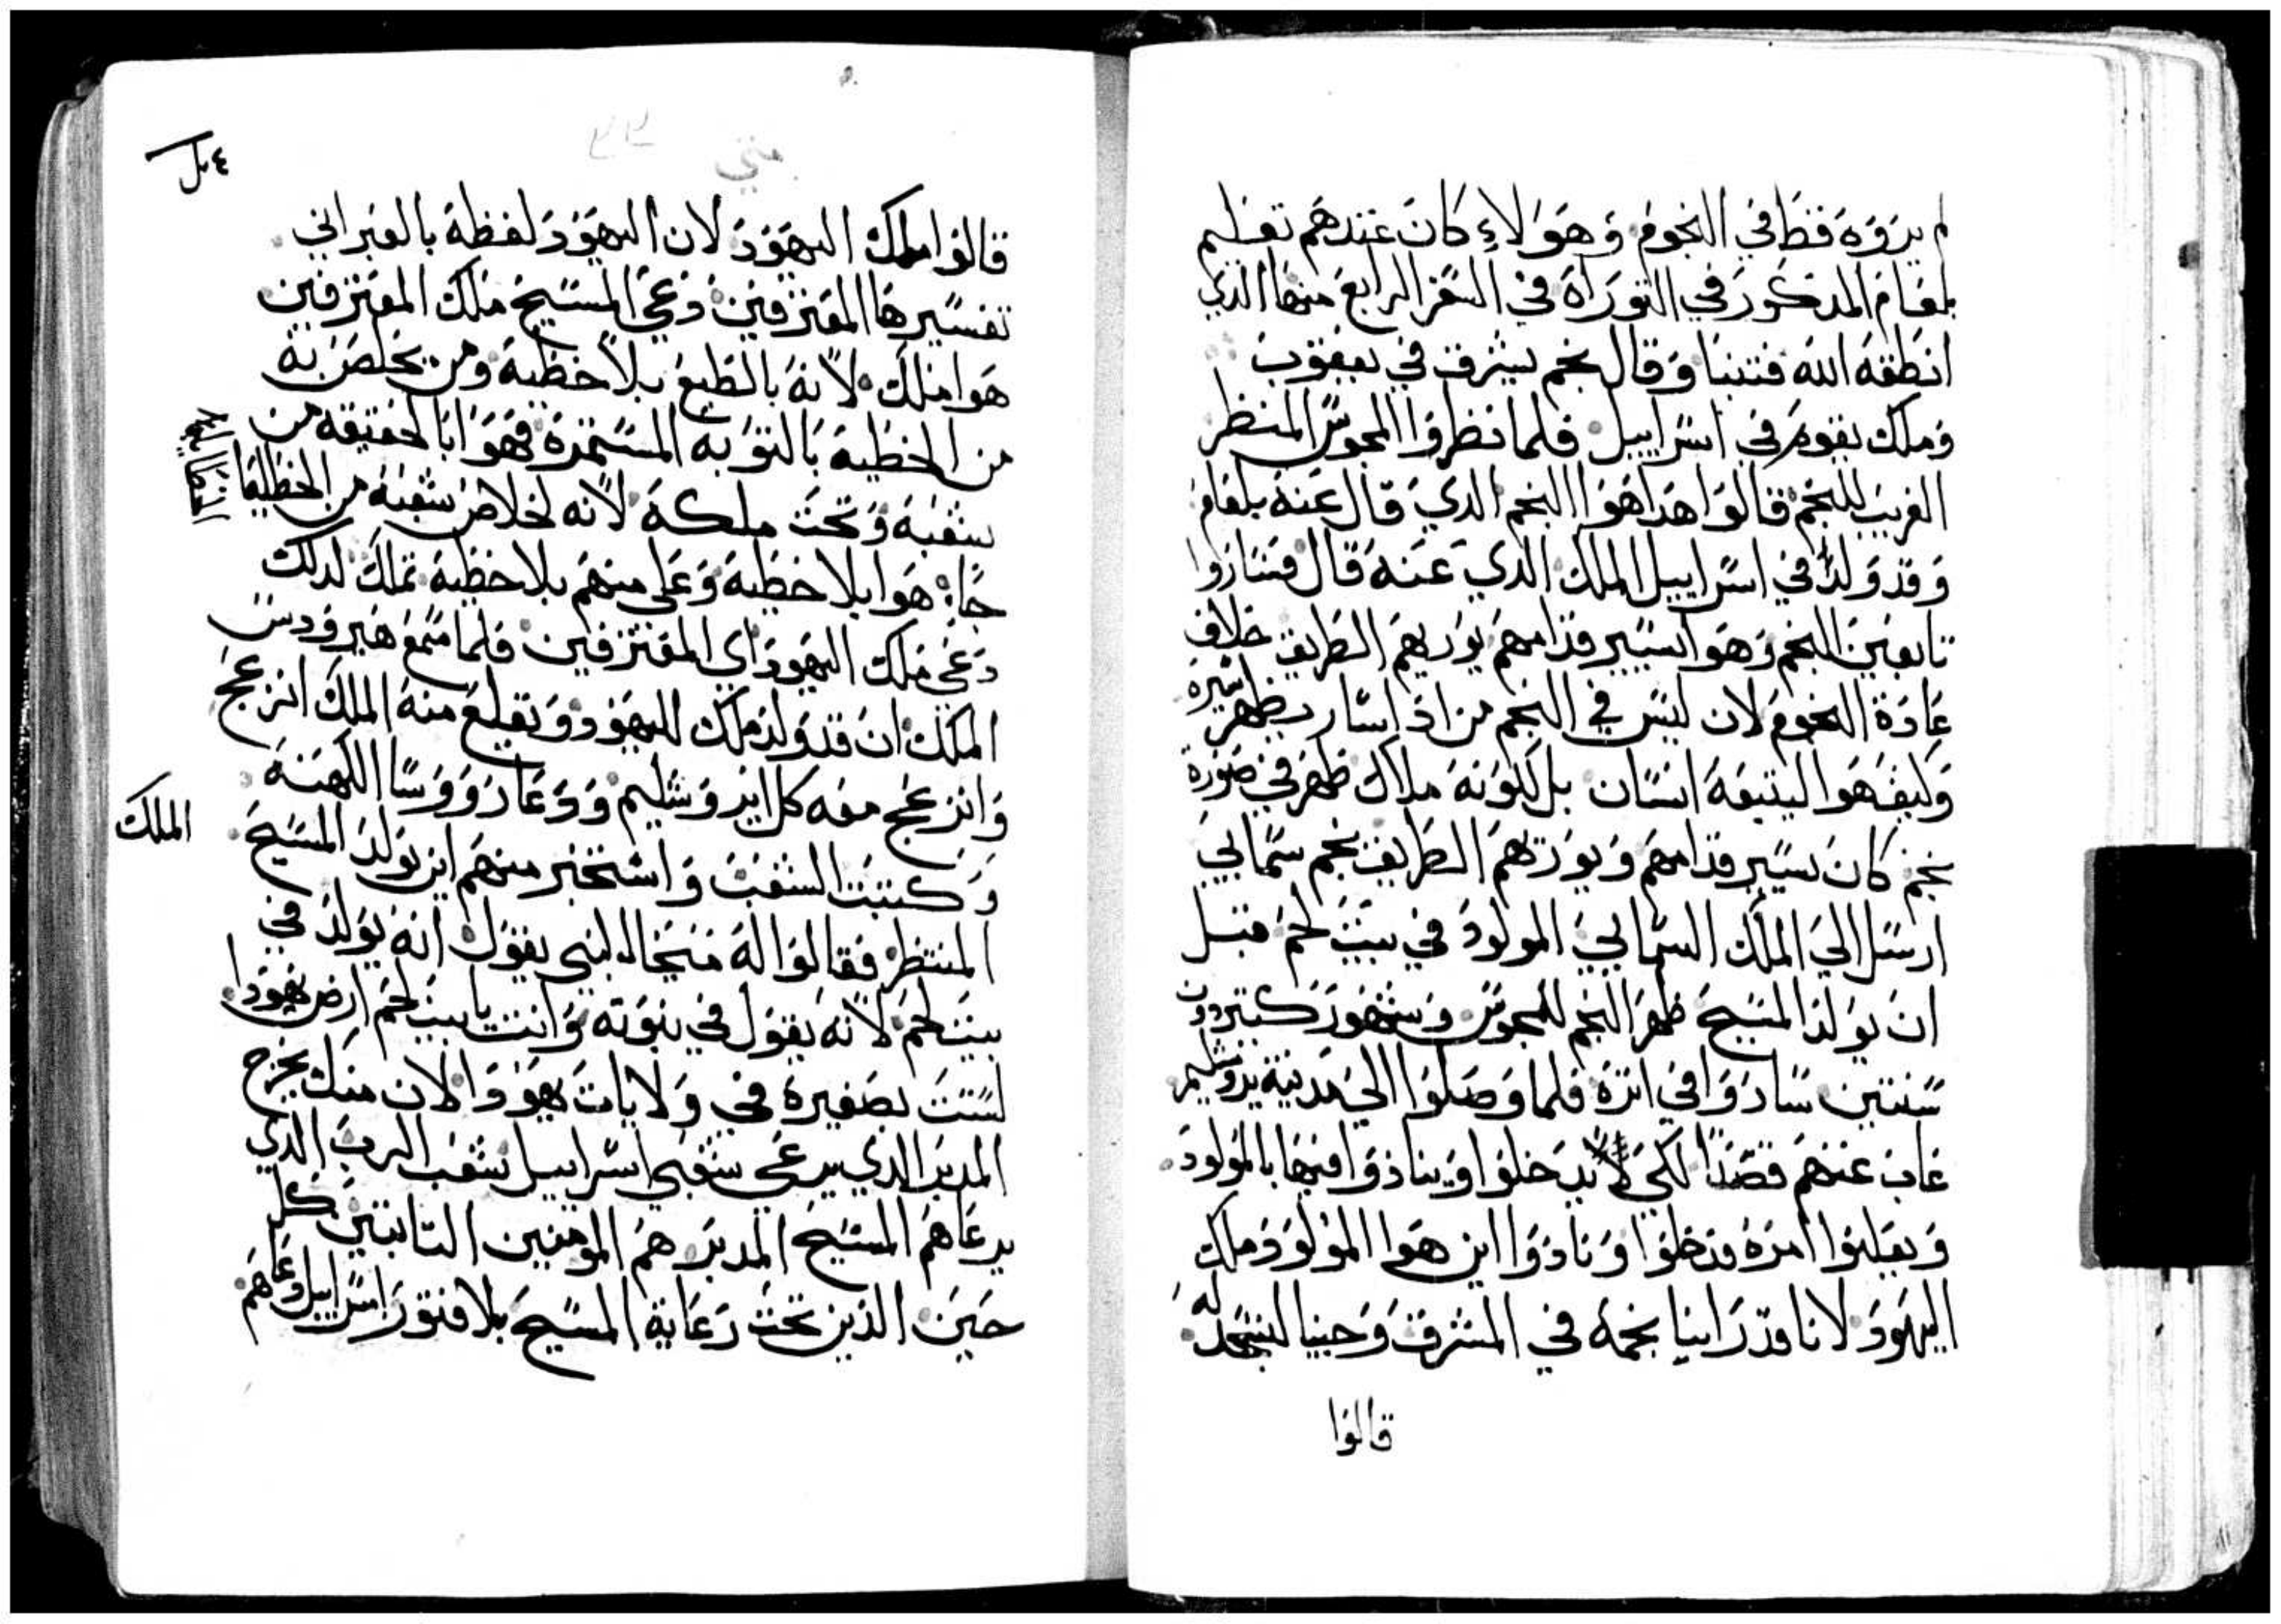 لم يروه قط في النجوم وهولاء كان عندهم تعليم
بلعام المدكور في التوراه في السفر الرابع منها الدي
انطقه الله فتنبا وقال نجم يشرق في يعقوب
وملك يقوم في اسراييل فلما نظروا المجوس المنظر
الغريب للنجم قالوا هدا هوا النجم الدي قال عنه بلعام
وقد ولد في اسراييل الملك الدي عنه قال فساروا
تابعين النجم وهوا يسير قدامهم يوريهم الطريق خلاف
عادة النجوم لان ليس في النجم من ادا سار يظهر سيره
وكيف هوا ليتبعه انسان بل لكونه ملاك ظهر في صورة
نجم كان يسير قدامهم ويوريهم الطريق نجم سمايي
ارسل الي الملك السمايي المولود في بيت لحم قبل
ان يولد المسيح ظهر النجم للمجوس وشهور كتير دون
سنتين ساروا في اتره فلما وصلوا الي مدينة يروشليم
غاب عنهم قصدا لكي يدخلوا وينادوا فيها بالمولود
ويعلنوا امره فدخلوا ونادوا اين هوا المولود ملك
اليهود لانا قد راينا نجمه في المشرق وجينا لنسجد له
قالوا
متي
قالوا ملك اليهود لان اليهود لفظة بالعبراني
تفسيرها المعترفين دعي المسيح ملك المعترفين
هوا ملك لانه بالطبع بلا خطية ومن يخلص به
من الخطية بالتوبه المستمرة فهوا بالحقيقه من
شعبه وتحت ملكه لانه لخلاص شعبه من الخطايا
جا هوا بلا خطية وعلي منهم بلا خطية تملك لدلك
دعي ملك اليهود اي المعترفين فلما سمع هيرودس
الملك ان قد ولد ملك لليهود ويقلع منه الملك انزعج
وانزعج معه كل ايروشليم ودعا روسا الكهنة
وكتبت الشعب واستخبر منهم اين يولد المسيح
الملك
المنتظر فقالوا له ميخا النبي يقول انه يولد في
بيت لحم لانه يقول في نبوته وانت يا بيت لحم ارض يهودا
لستت بصغيرة في ولايات يهودا لان منك يخرج
المدبر الدي يرعي شعبي اسراييل شعب الرب الدي
يرعاهم المسيح المدبر هم المومنين التابتين كل
حين الدين تحت رعاية المسيح بلا فتور اسراييل